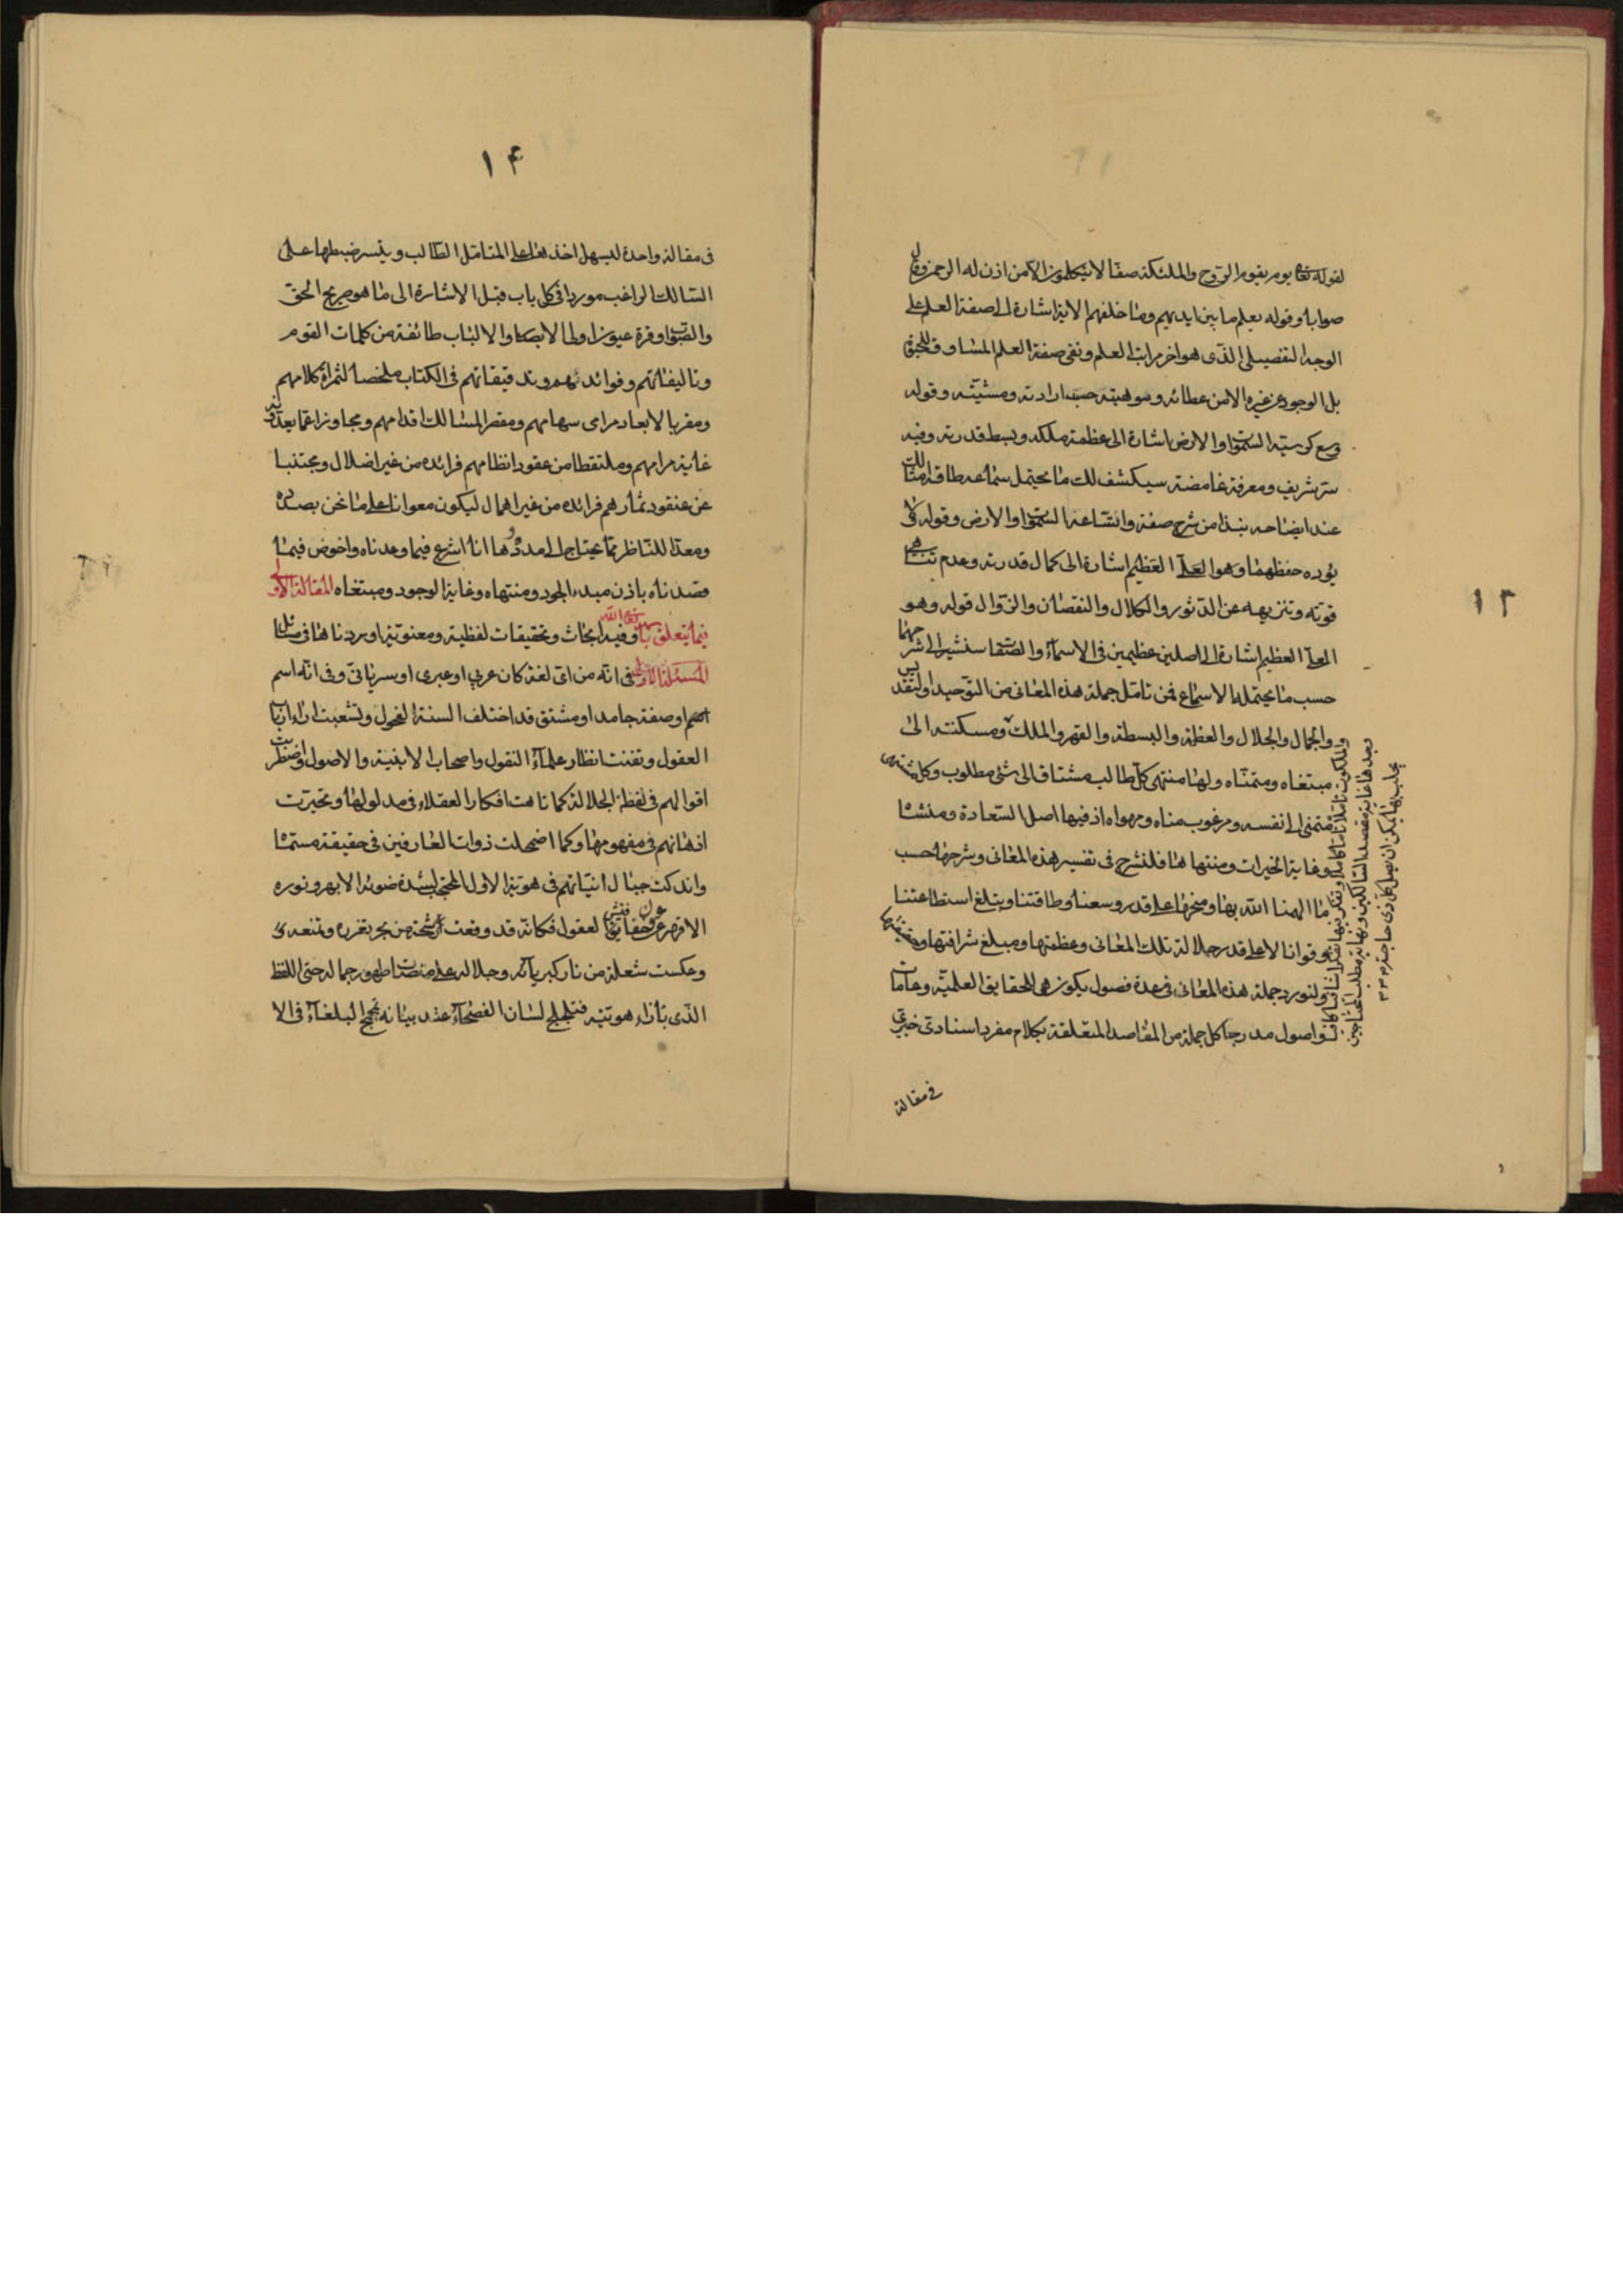 ١٣
لقوله تعا يوم يقوم الروح والملئكة صفا لا يتكلمون الا من اذن له الرحمن وقال
صوابا وقوله يعلم ما بين ايديهم وما خلفهم الاية اشارة الى صفة العلم على
الوجه التفصيلى الذى هو اخر مراتب العلم ونفى صفة العلم المساوق للحق
بل الوجود عن غيره الا من عطائه وموهبته حسب ارادته ومشيته وقوله
وسع كرسيه السموات والارض اشارة الى عظمة ملكه وبسط قدرته وفيه
سر شريف ومعرفة غامضة سيكشف لك ما يحتمل سماعه طاقة امثالك
عند ايضاحه نبذا من شرح صفة واتساعه السموات والارض وقوله لا
يؤده حفظهما وهو العلى العظيم اشارة الى كمال قدرته وعدم تناهى
قوته وتنزيهه عن الدثور والكلال والنقصان والزوال قوله وهو
العلى العظيم اشارة الى اصلين عظيمين فى الاسماء والصفات سنشير الى شرحهما
حسب ما يحتمله الاسماع فمن تامل جملة هذه المعانى من التوحيد والتقديس
والجمال والجلال والعظمة والبسطة والقهر والملك ومسكنته الى
مبتغاه ومتمناه ولها منتهى كل طالب مشتاق الى شئ مطلوب وكل مشتهى
متمنى الى نفسه ومرغوب مناه ومهواه اذ فيها اصل السعادة ومنشئا
وغاية الخيرات ومنتهاها فلنشرح فى تفسير هذه المعانى وشرحها حسب
ما الهمنا الله بها ومنحها على قدر وسعنا وطاقتنا ويبلغ استطاعتنا
وقوانا لا على قدر جلالة تلك المعانى وعظمتها ومبلغ شرافتها وحقيقتها
ولنورد جملة هذه المعانى فى عدة فصول يكون هى الحقايق العلمية وعامات
اصول مدرجا كل جملة من المقاصد المتعلقة بكلام مفرد اسنادى خبرى
والملكوت تاملا تاما كاملا وتفكر بها تفكرا شافيا كافيا
وجدها غاية مقصد السالكين ونهاية مطلب المحتاجين
يجلب بها يمكن ان يصل كل ذى حاجة
فى مقالة
١۴
فى مقالة واحدة ليسهل اخذها على المتامل الطالب ويتيسر ضبطها على
السالك الراغب موردا فى كل باب قبل الاشارة الى ما هو صريح الحق
والصواب وقرة عيون اولى الابصار والالباب طائفة من كلمات القوم
وتاليفاتهم وفوائدهم وتدقيقاتهم فى الكتاب ملخصا لثمرات كلامهم
ومقربا لابعاد مرامى سهامهم ومقصر المسالك اقدامهم ومجاوزا عما يعدونه
غاية مرامهم وملتقطا من عقود انظامهم فرائده من غير اضلال ومجتنبا
عن عنقود ثمارهم فرائده من غير اهمال ليكون معوانا على ما نحن بصدده
ومعدا للناظر مما يحتاج الى مدده وها انا اشرع فيما وعدناه واخوض فيما
قصدناه باذن مبدء الجود ومنتهاه وغاية الوجود ومبتغاه المقالة الاولى
فيما يتعلق باسم الله تعا وفيه ابحاث وتحقيقات لفظية ومعنوية اوردناها فى مسائل
المسئلة الاولى فى انه من اى لغة كان عربى او عبرى او سريانى وفى انه اسم
او صفة جامد او مشتق قد اختلف السنة الفحول وتشعبت اراء ارباب
العقول وتفننت انظار علماء النقول واصحاب الابنية والاصول واضطربت
اقوالهم فى لفظة الجلالة كما تاهت افكار العقلاء فى مدلولها وتحيرت
اذهانهم فى مفهومها وكما اضمحلت ذوات العارفين فى حقيقة مسماها
واندكت جبال انياتهم فى هوية الاول المحتجب لشدة ضوئه الابهر ونوره
الاقهر عن عقول العقول فكانه قد وقعت رشحة من بحر تفرده وتمنعه
وعكست شعلة من نار كبريائه وجلاله على منصات ظهور جماله حتى اللفظ
الذى بازاء هويته فتلجلج لسان الفصحاء عند بيانه تمجمج البلغاء فى الا